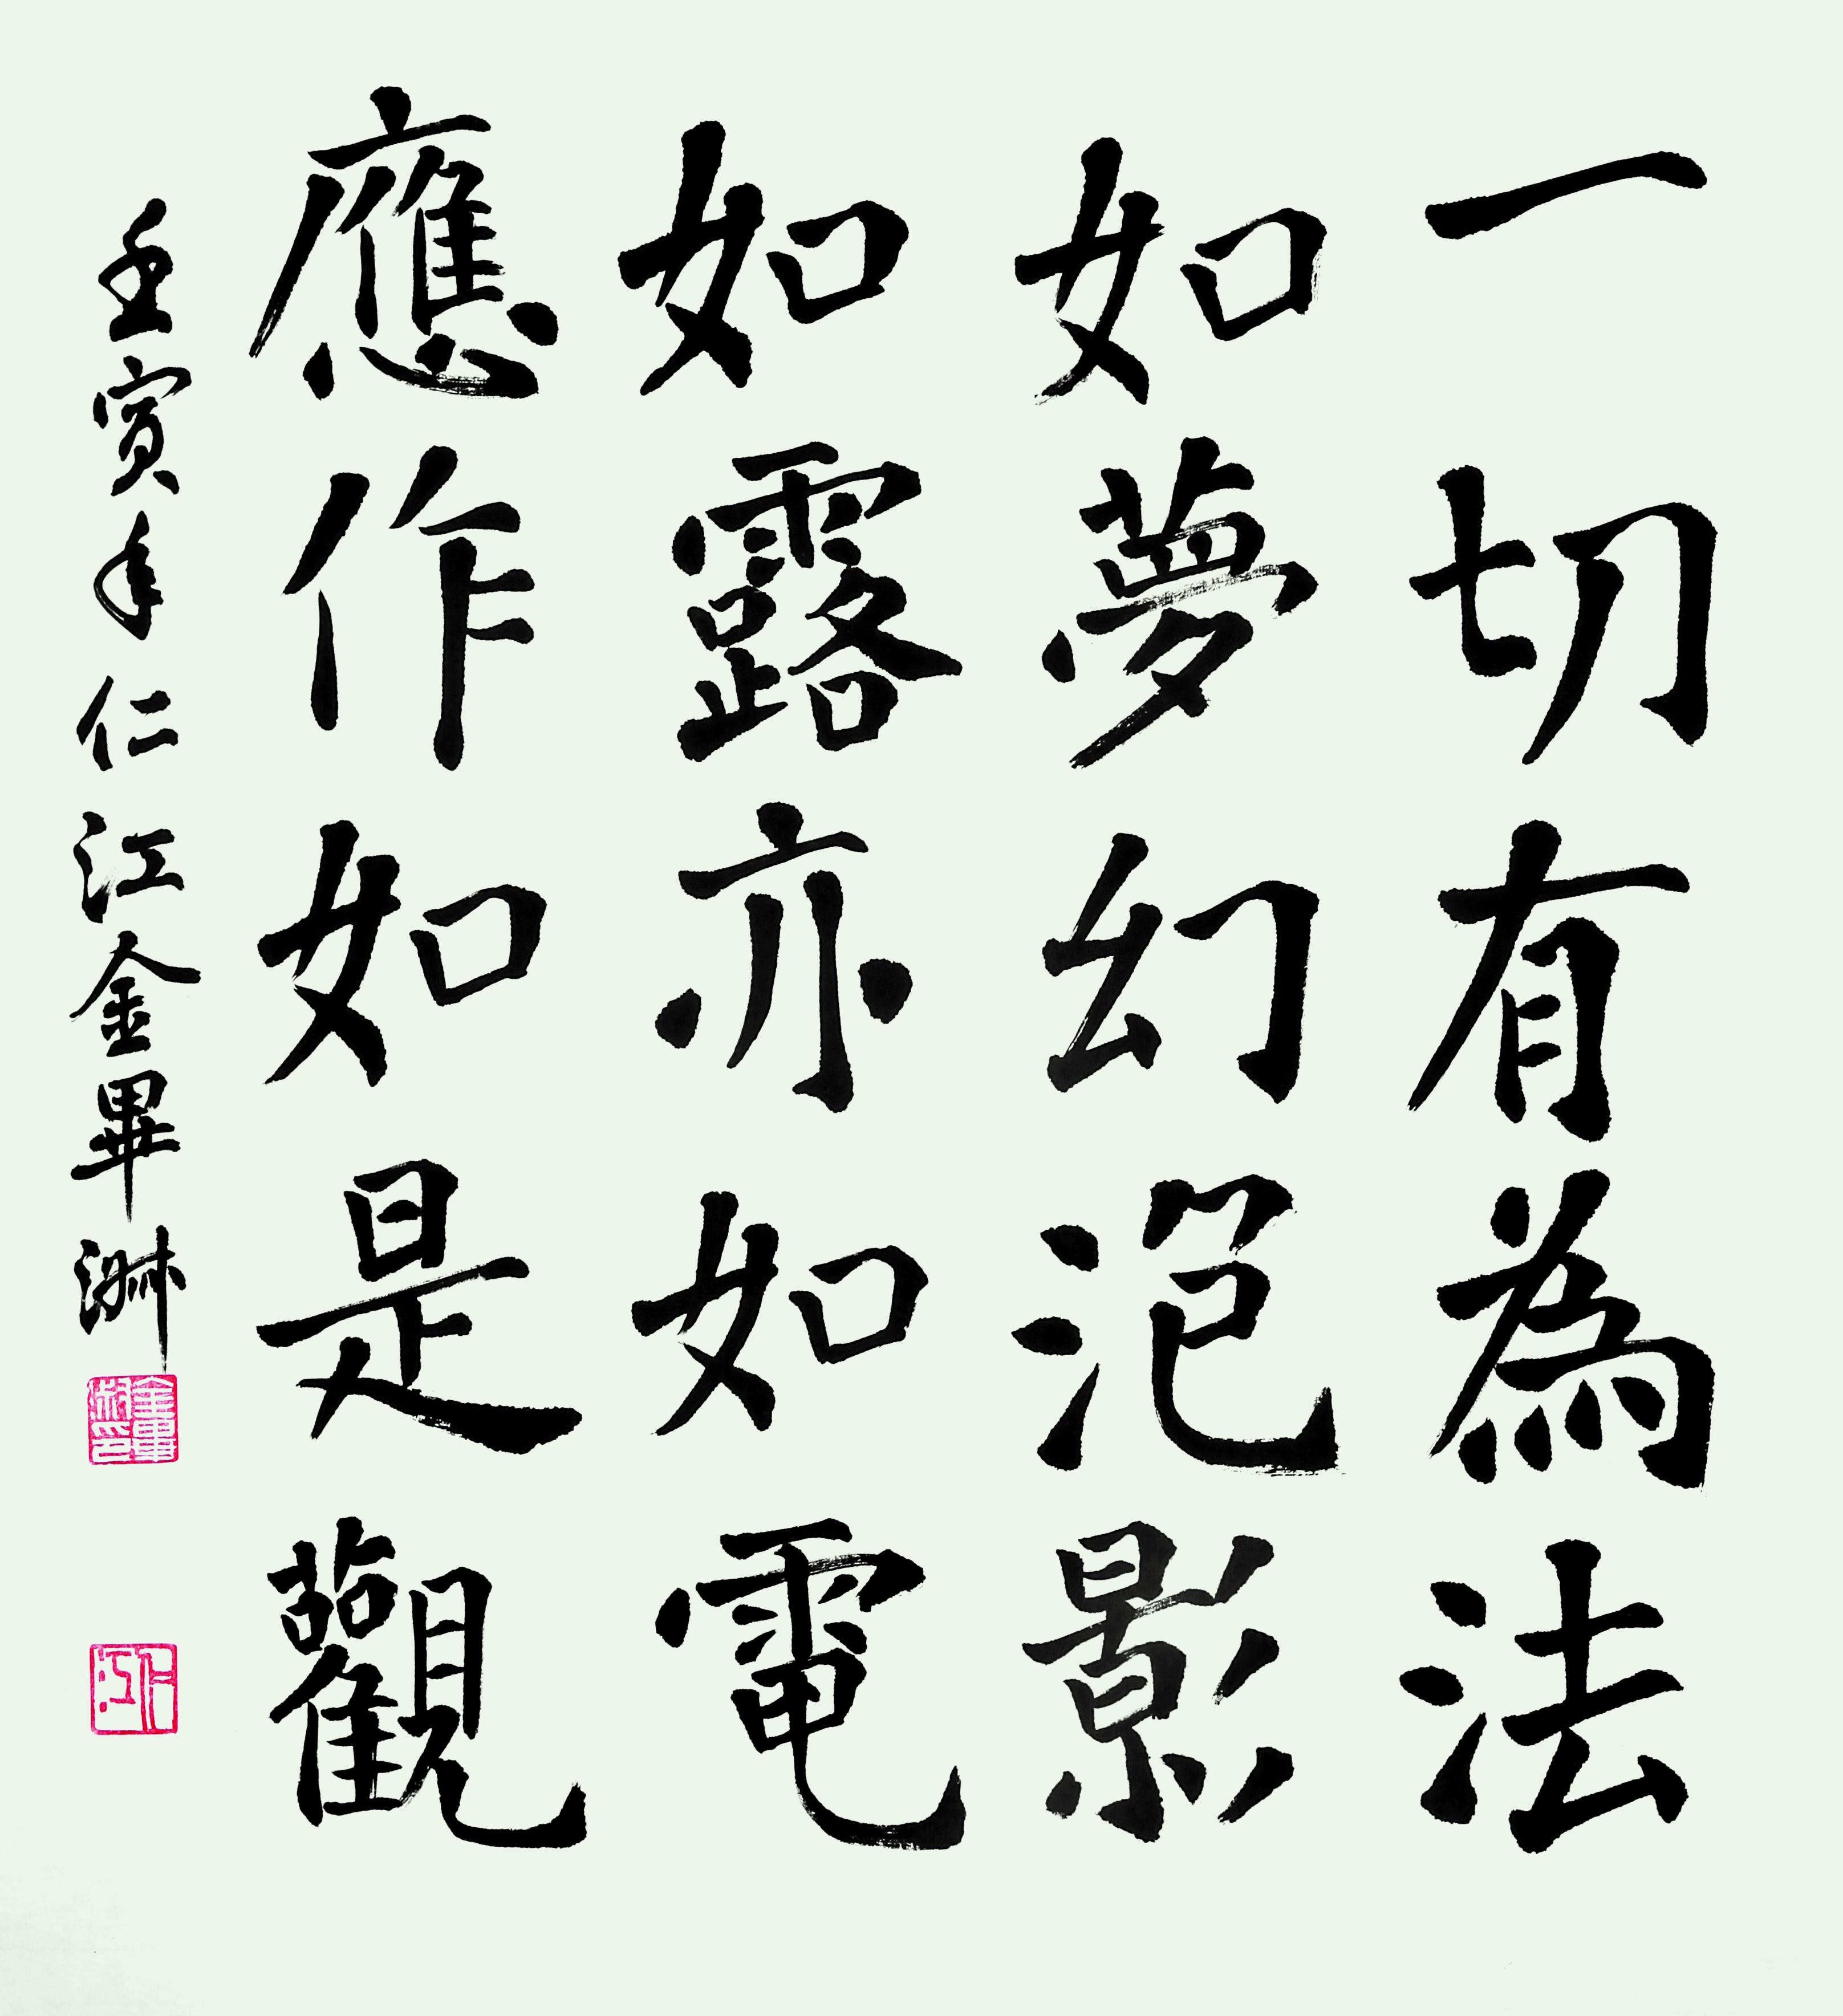 一切有為法
如夢幻泡影
如露亦如電
應作如是觀
壬寅年仁江金畢洲
仁江